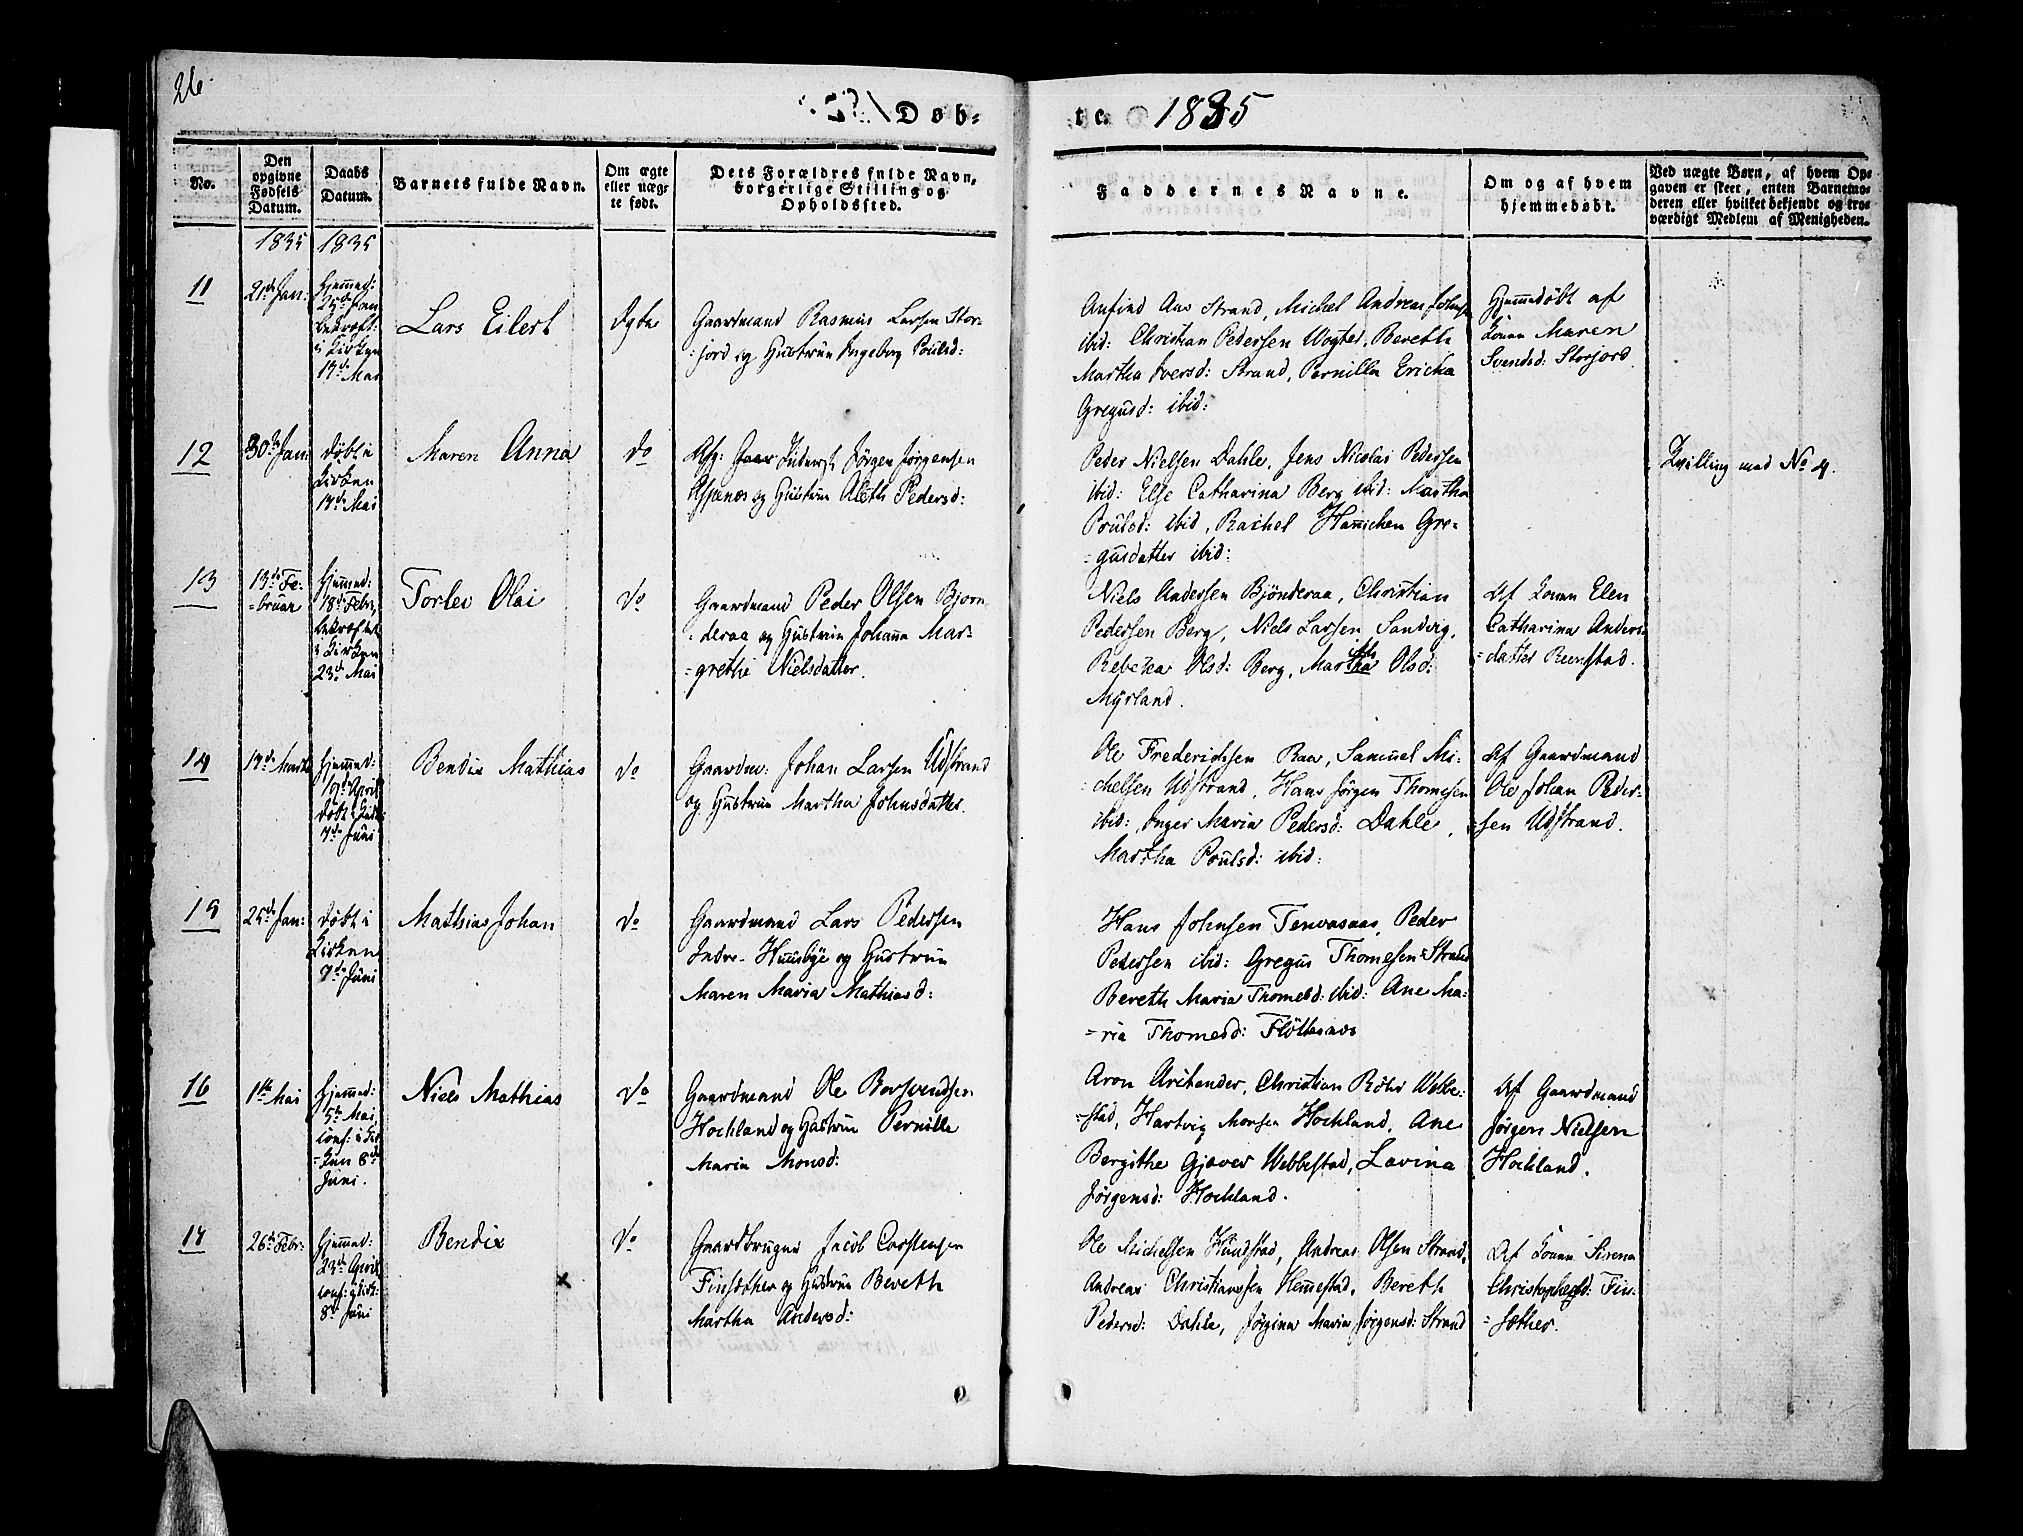 26.
Døb-
te. 1835
No.
Den opgivne Fødsels Datum.
Daabs Datum.
Barnets fulde Navn.
Om ægte eller uægte født.
Dets Forældres fulde Navn, borgerlige Stilling og Opholdssted.
Faddernes Navne.
Om og af hvem hjemmedøbt.
Ved uægte Børn, af hvem Op-
gaven er skeet, enten Barnemo-
deren eller hvilket bekjendt og tro-
værdigt Medlem af Menigheden.
1835 1835
11
21de Jan:
Hjemmed:
bekræft:
i Kirken
17de Mai
Lars Eilert
Ægte
Gaardmand Rasmus Larsen Stor-
jord og Hustrue Ingeborg Poulsd:
Anfind Strand, Michel Andreas Johns
ibid: Christian Pedersen Wogter, Bereth
Martha Iversd: Strand, Pernilla Ericka
Gregusd: ibid:
Hjemmedøbt af
Konen Maren
Svendsd: Storjord.
12
30te Jan:
døbt i
Kirken
17de Mai
Maren Anna
do
Jørgen Jørgensen
og Hustrue Aleth Pedersd:
Peder Nielsen Dahle, Jens Nicolai Pedersen
ibid: Else Catharina Berg ibid: Martha
Poulsd: ibid, Rachel Hanichen Gre-
=gusdatter ibid:
Tvilling med No 4.
13
13de Fe-
=bruar
Hjemmed:
18de Febr,
bekræftet
i Kirken
23de Mai
Torlev Olai
do
Gaardmand Peder Olsen Bjorn
:deraa og Hustrue Johanna Mar-
=grethe Nielsdatter.
Niels Andersen Bjönderaa, Christian
Pedersen Berg, Niels Larsen Sandvig,
Rebecka Olsd: Berg, Martha Olsd:
Myrland.
Af Konen Elen
Catharina Anders
=datter Reenstad.
14
17de Marts
Hjemmed:
19de April
døbt i Kirk:
7de Juni
Bendix Mathias
do
Gaardm: Johan Larsen Udstrand
og Hustrue Martha Johnsdatter.
Ole Frederichsen Raa, Samuel Mi-
chelsen Udstrand, Hans Jørgen Thomesen
ibid:, Inger Maria Pedersd: Dahle,
Martha Poulsd: ibid:
Af Gaardmand
Ole Johan Peder-
=sen Udstrand.
15
25de Jan:
døbt i
Kirken
7de Juni
Mathias Johan
do
Gaardmand Lars Pedersen
Indre- Huusbye og Hustrue
Maren Maria Mathiasd:
Hans Johnsen Tenvasaas, Peder
Pedersen ibid: Gregus Thomesen Strand
Bereth Maria Thomesd: ibid: Ane Ma-
=ria Thomesd: Flöttenæs
16
1ste Mai
Hjemmed:
5te Mai
conf: i Kir
=ken 8de
Juni.
Niels Mathias
do
Gaardmand Ole Borsvendsen
Hochland og Hustrue Pernille
Maria Monsd:
Aron Arctander, Christian Röhr Webbe-
=stad, Hartvig Monsen Hochland, Ane
Bergithe Gjæver Webbestad, Lavina
Jørgensd: Hochland.
Af Gaardmand
Jørgen Nielsen
Hochland.
17
26de Febr:
Hjemmed:
23de April
conf: i Kirk:
8de Juni
Bendix
do
Gaardbruger Jacob Carstensen
Finsæther og Hustrue Bereth
Martha Andersd:
Ole Michelsen Hundstad, Andreas Olsen Strand,
Andreas Christianssen Hemestad, Bereth
Pedersd: Dahle, Jørgina Maria Jørgensd: Strand
Af Konen Sirena
Christophersd: Fin-
=sæther.